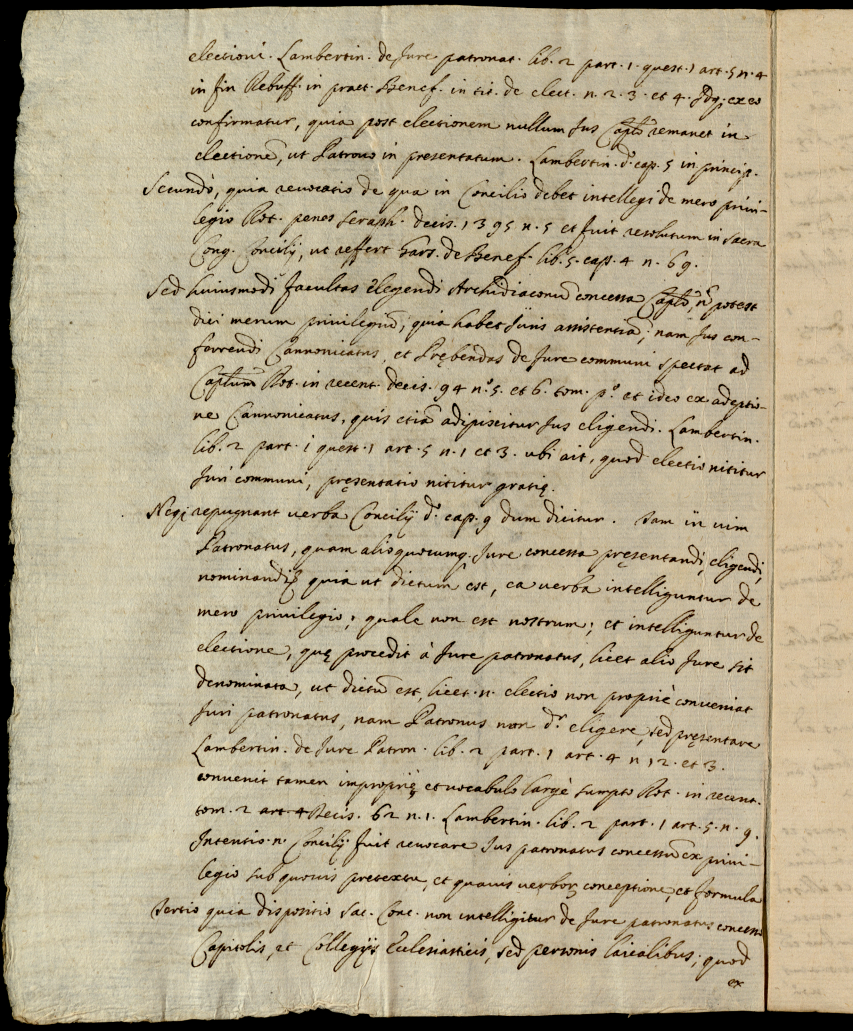 electioni. Lambertin. de Jure patronat. lib. 2 part. 1. quest. 1 art. 5 n. 4
in fin Rebuff. in pract. Benef. in tit. de elect. n. 2. 3. et 4. ex eo
confirmatur, quia post electionem nullum Jus Caplo remanet in
electione, ut Patrono in presentatum. Lambertin. d. cap. 5 in princip.
Secundò, quia reuocatio de qua in Concilio debet intellegi de mero priui-
legio Rot. penes Seraph. decis. 1395 n. 5 et fuit resolutum in Sacra
Cong. Concilij, ut reffert Garz. de Benef. lib. 5. cap. 4 n. 69.
Sed huiusmodi facultas elegendi Archidiaconũ concessa Caplo, ñ potest
dici merum privilegiũ, quia habet Juris assistentiã; nam Jus con-
ferrendi Cannonicatus, et Prębendas de Jure communi spectat ad
Caplum Rot. in recent. decis. 94 n.º 5. et 6. tom. p.º et ideo ex adeptio-
ne Cannonicatus, quis etiã adipiscitur Jus eligendi. Lambertin.
lib. 2 part. i quest. 1 art. 5 n. 1 et 3. ubi ait, quod electio nititur
Juri communi, pręsentatio nititur gratię.
Neq; repugnant uerba Concilij d. cap. 9 dum dicitur. Tam in uim
Patronatus, quam alio quocumq. Jure concessa pręsentandi, eligendi,
nominandi quia ut dictum est, ea uerba intelliguntur de
mero priuilegio; quale non est nostrum; et intelliguntur de
electione, quę procedit à Jure patronatus, licet alio Jure sit
denominata, ut dictũ est, licet. n. electio non propriè conueniat
Juri patronatus, nam Patronus non d.r eligere, sed pręsentare
Lambertin. de Jure Patron. lib. 2 part. 1 art. 4 n 12. et 3.
conuenit tamen impropriè, et uocabulo largè sumpto Rot. in recent.
tom. 2 Decis. 62 n. 1. Lambertin. lib. 2 part. 1 art. 5. n. 9.
Intentio. n. Concilij fuit reuocare Jus patronatus concessũ ex priui-
legio sub quouis pretextu, et quauis uerborũ conceptione, et formula
Tertio quia dispositio Sac. Conc. non intelligitur de Jure patronatus concesso
Capitolis, et Collegijs Eclesiasticis, sed personis laicalibus; quod
ex